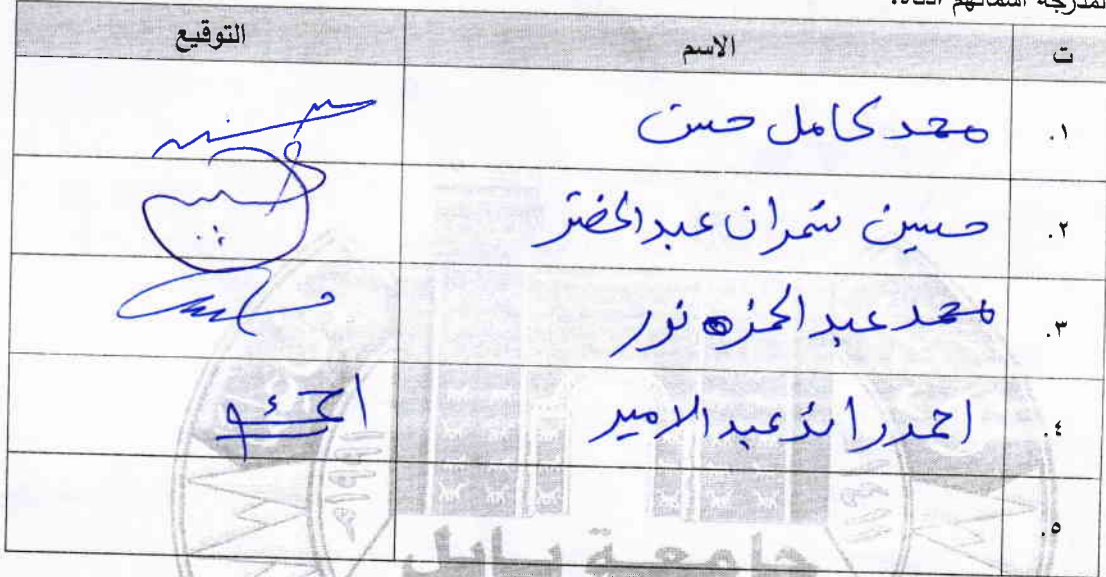 المدرجة اسمائهم ادناه.
ت الاسم التوقيع
١. محمد كامل حسن
٢. حسين شمران عبدالخضر
٣. محمد عبد الحمزه نور
٤. احمد رائد عبد الامير
٥.
جامعة بابل